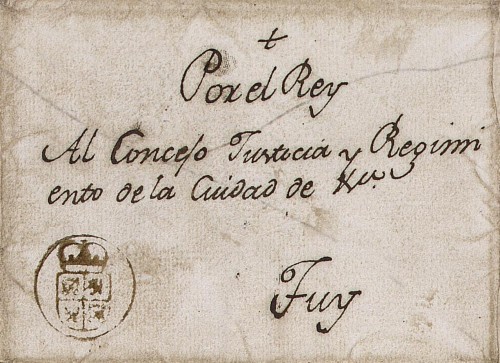 +
Por el Rey
Al Concejo Justicia y Regimi
ento de la Ciudad de
Tuy